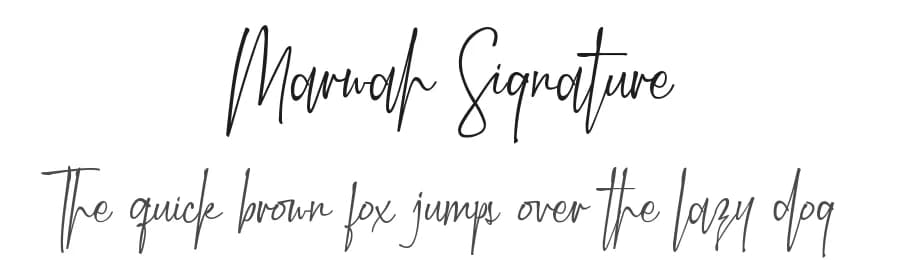 Marwah Signature
The quick brown fox jumps over the lazy dog